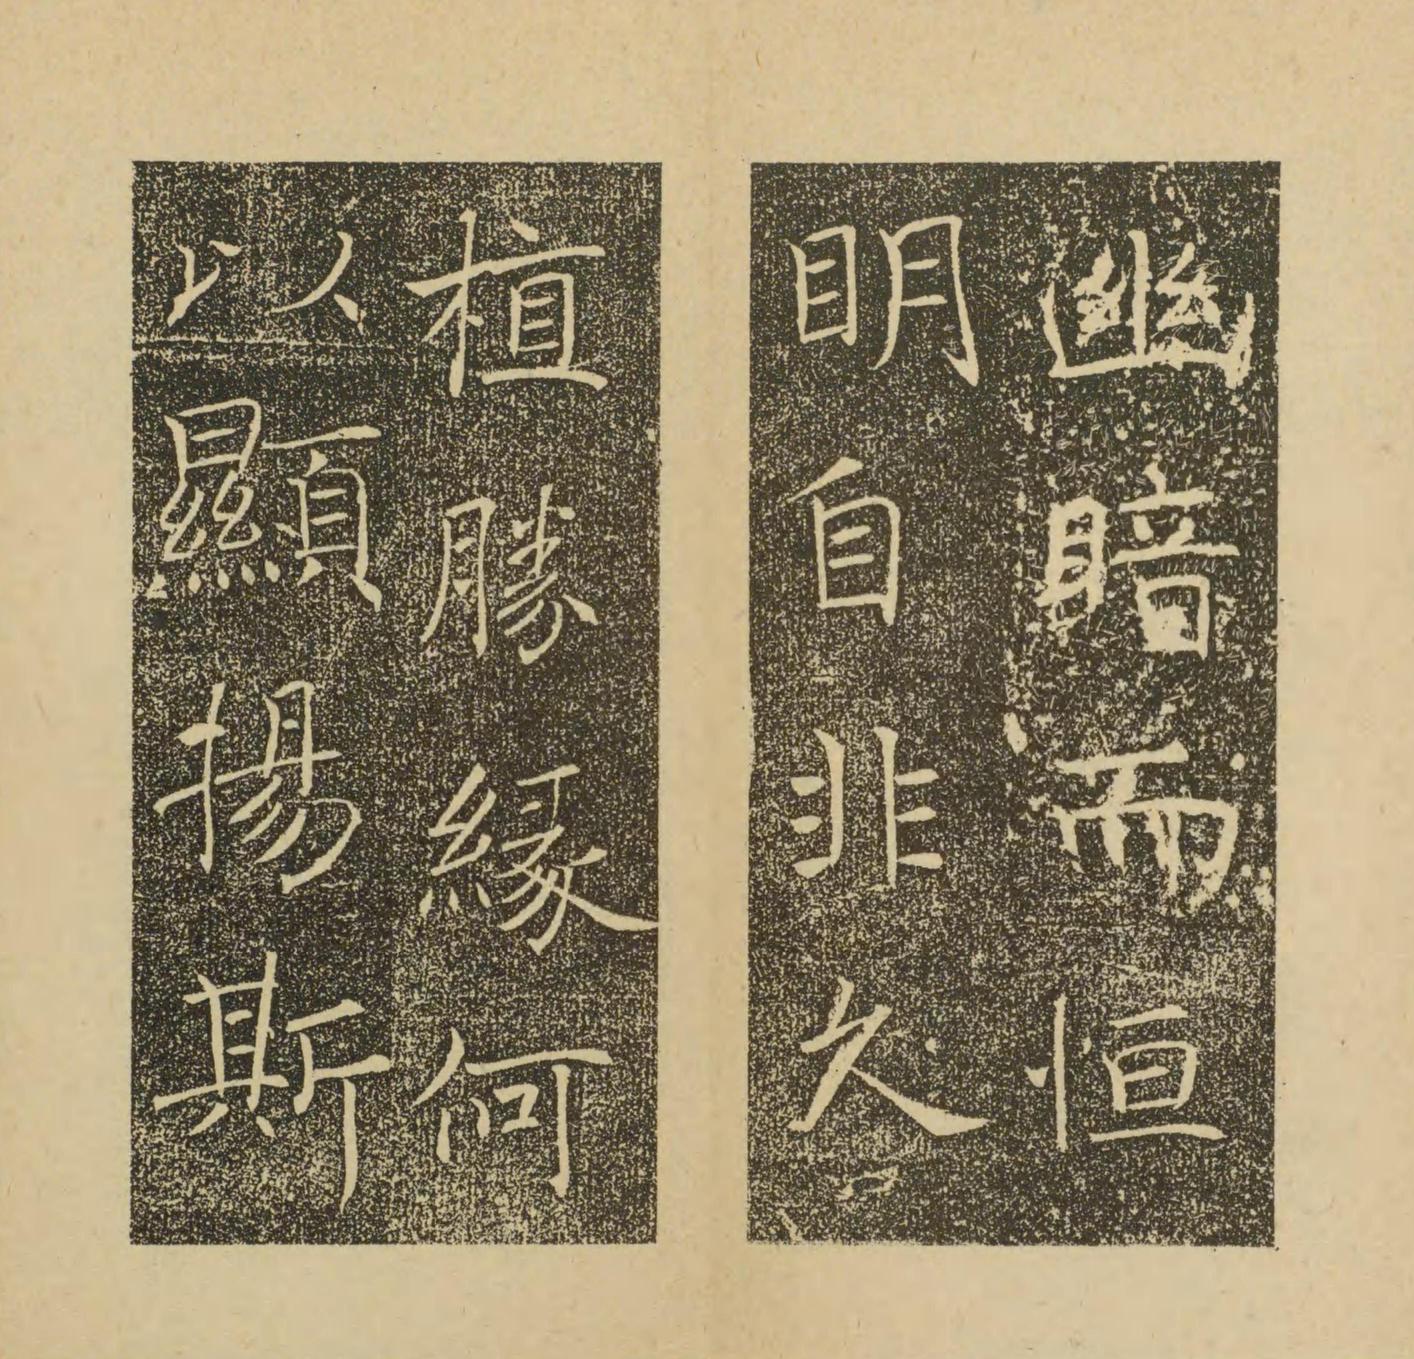 幽暗而恒
明自非久
植勝緣何
以顯揚斯